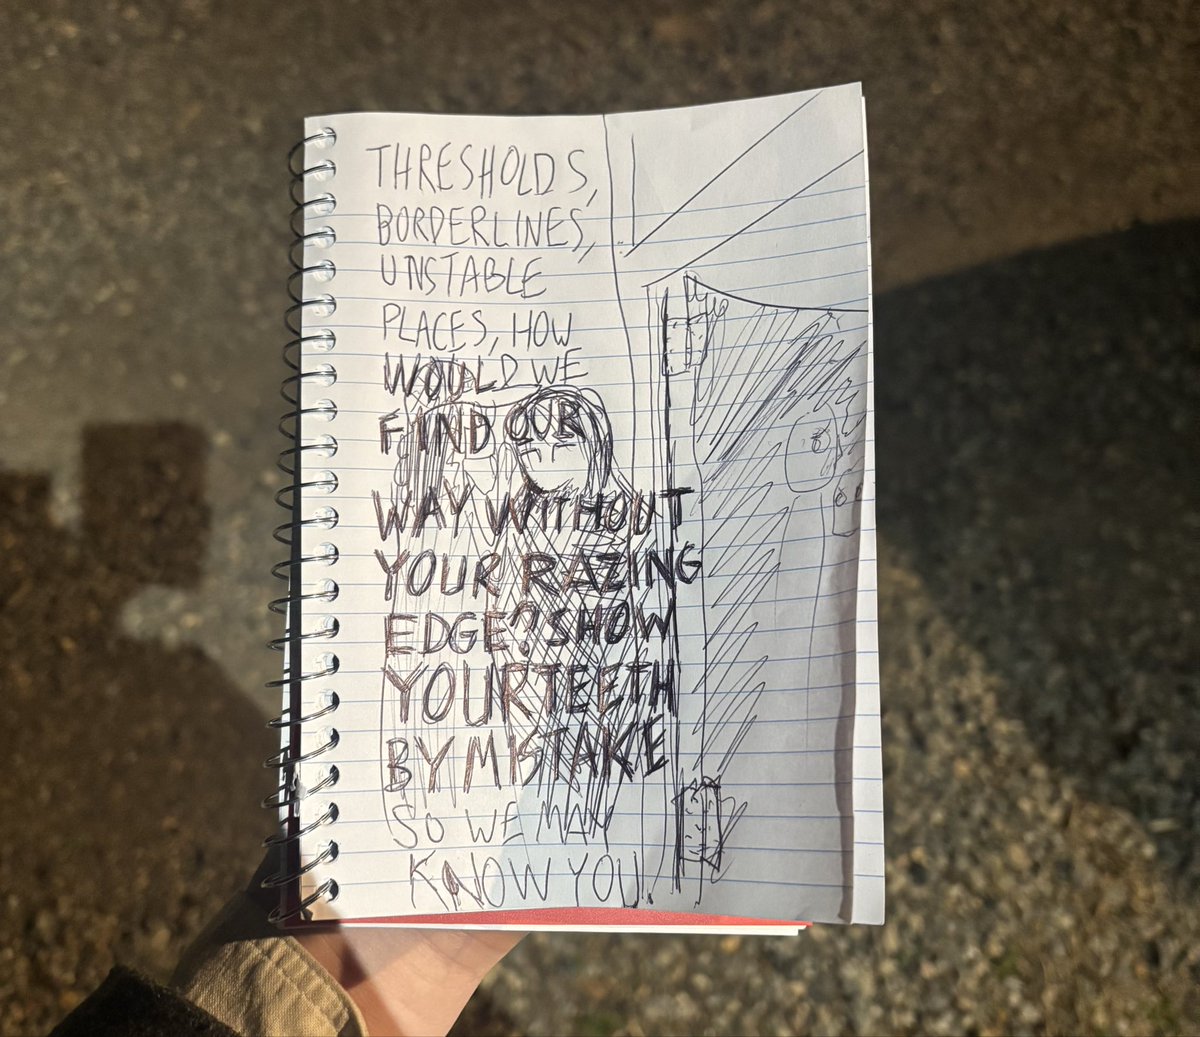 THRESHOLDS,
BORDERLINES,
UNSTABLE
PLACES, HOW
WOULD WE
FIND OUR
WAY WITHOUT
YOUR RAZING
EDGE? SHOW
YOUR TEETH
BY MISTAKE
SO WE MAY
KNOW YOU.